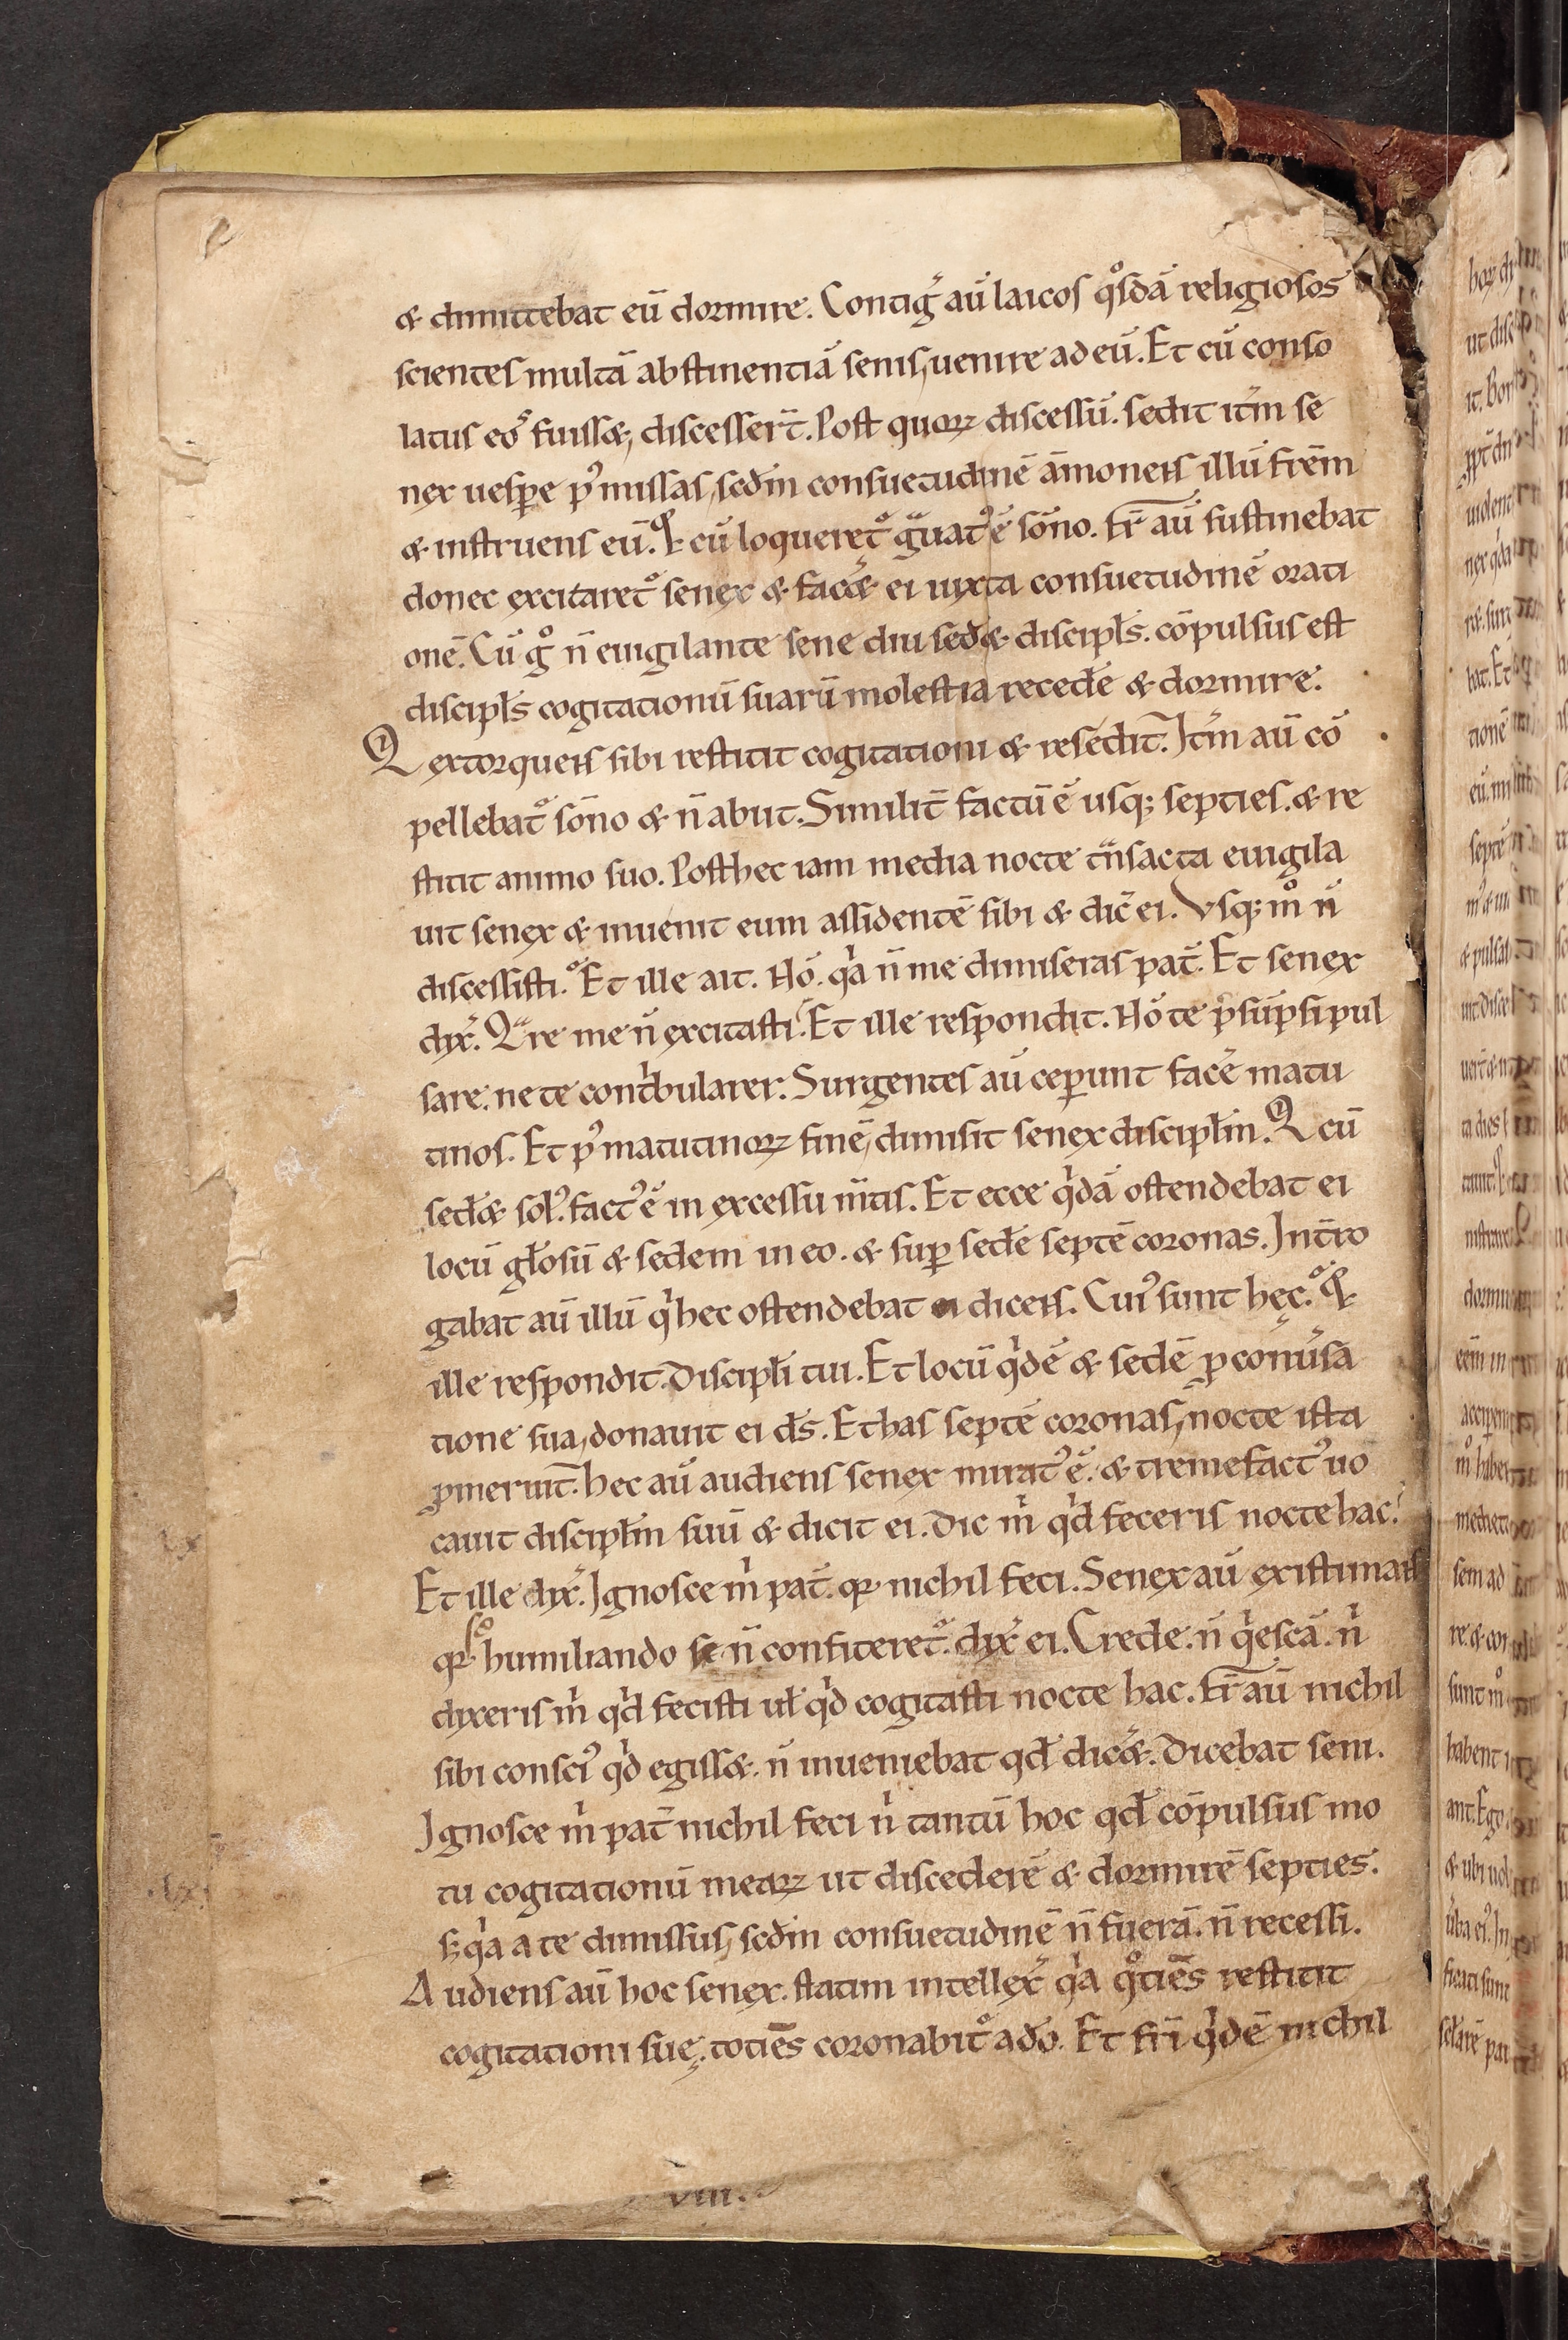 & dimittebat eū dormire. Contig̉ aū laicos q̊sdā religiosos
scientes multā abstinentiā senis, uenire ad eū. Et cū conso
latus eos fuiss&, discesserт̄. Post quoꝝ discessū. sedit itm̄ se
nex uesꝑe p᾿ missas, scd̄m consuetudinē āmonens illū frēm
& instruens eū. Q cū loqueret᷑ g̃uat᾿ ē sōno. Fr̄ aū sustinebat
donec excitaret᷑ senex & fac̄& ei iuxta consuetudinē orati
onē. Cū g̊ n̄ euigilante sene diu sed̄& discipłs. cōpulsus est
discipłs cogitationū suarū molestia recedēe & dormire.
Q extorquens sibi restitit cogitationi & resedit. Itm̄ aū cō
pellebat᷑ sōno & n̄ abiit. Similit̄ factū ē usq; septies. & re
stitit animo suo. Post hec iam media nocte tͣnsacta euigila
uit senex & inuenit eum assidentē sibi & dic̄ ei. Vsq; m̊ n̄
discessisti. Et ille ait. Nō. qͥa n̄ me dimiseras pat̄. Et senex
dix̄. Qͣre me n̄ excitasti. Et ille respondit. Nō te p̄sūpsi pul
sare. ne te contͥbularer. Surgentes aū ceꝑunt facē matu
tinos. Et p᾿ matutinoꝝ finē, dimisit senex discipłm. Q cū
sed̄& sol᾿. fact᾿ ē in excessu m̄tis. Et ecce qͥdā ostendebat ei
locū gło͞sū & sedem in eo. & suꝑ sedē septē coronas. Int̄ro
gabat aū illū qͥ hec ostendebat ei dicens. Cui᾿ sunt hęc. Q
ille respondit. Discipłi tui. Et locū qͥdē & sedē ꝓ conu̾sa
tione sua, donauit ei ds̄. Et has septē coronas, nocte ista
ꝓmeruit. hec aū audiens senex mirat᾿ ē. & tremefact᾿ uo
cauit discipłm suū & dicit ei. Dic mͥ qͥd feceris nocte hac.
Et ille dix̄. Ignosce mͥ pat̄. qꝛ nichil feci. Senex aū existimans
qꝛ humiliando se n̄ confiteret᷑. dix̄ ei. Crede. n̄ qͥescā. nͥ
dixeris mͥ qͥd fecisti uł qͥd cogitasti nocte hac. Fr̄ aū nichil
sibi consci᾿ qͥd egiss&. n̄ inueniebat qd̄ dic̄&. Dicebat seni.
Ignosce mͥ pat̄ nichil feci nͥ tantū hoc qd̄ cōpulsus mo
tu cogitationū meaꝝ ut discederē & dormirē septies.
S; qͥa a te dimissus, scd̄m consuetudinē n̄ fuerā. n̄ recessi.
Audiens aū hoc senex. statim intellex̄ qͥa q̊tiēs restitit
cogitationi suę. totiēs coronabit᷑ a dō. Et fr̄i qͥdē nichil
viii.